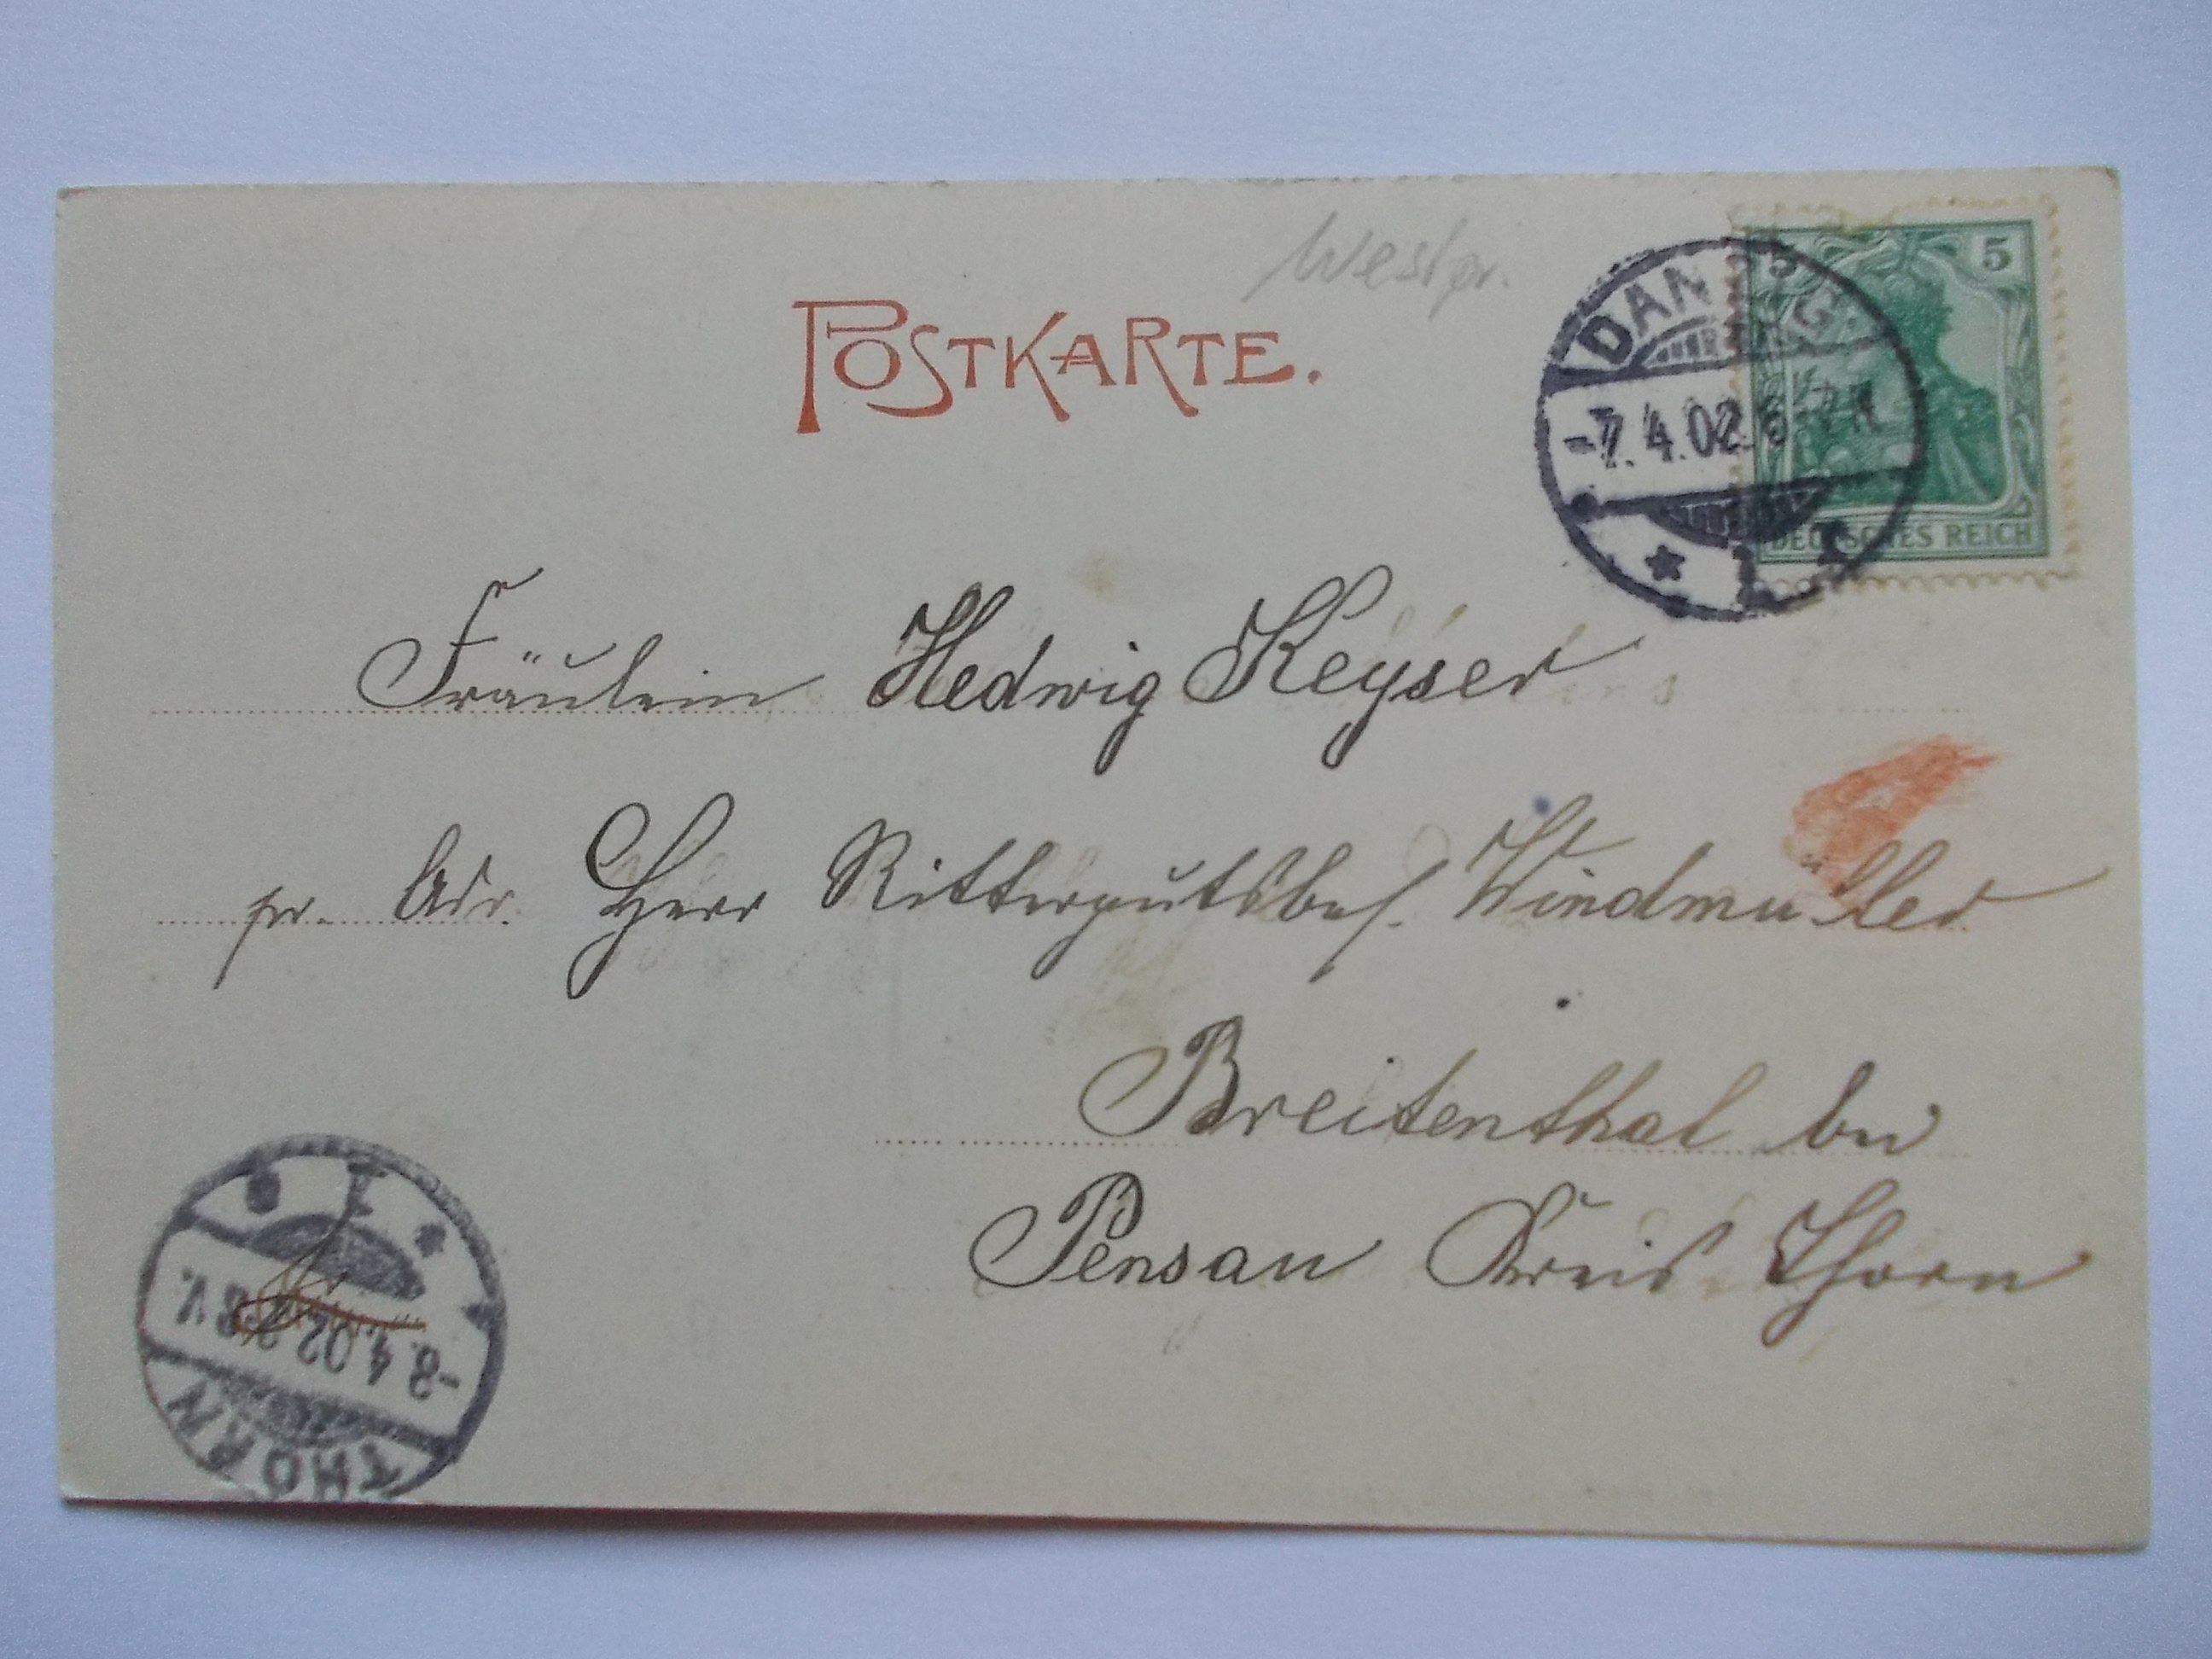 Westpr.
POSTKARTE.
5 5
DANZIG
-7.4.02.
* 1 *
DEUTSCHES REICH
Fräulein Hedwig Keyser
pr. Adr. Herr Rittergutsbes. Windmüller
Breitenthal bei
Pensau Kreis Thorn
THORN
-8.4.02. 8 V.
* 1